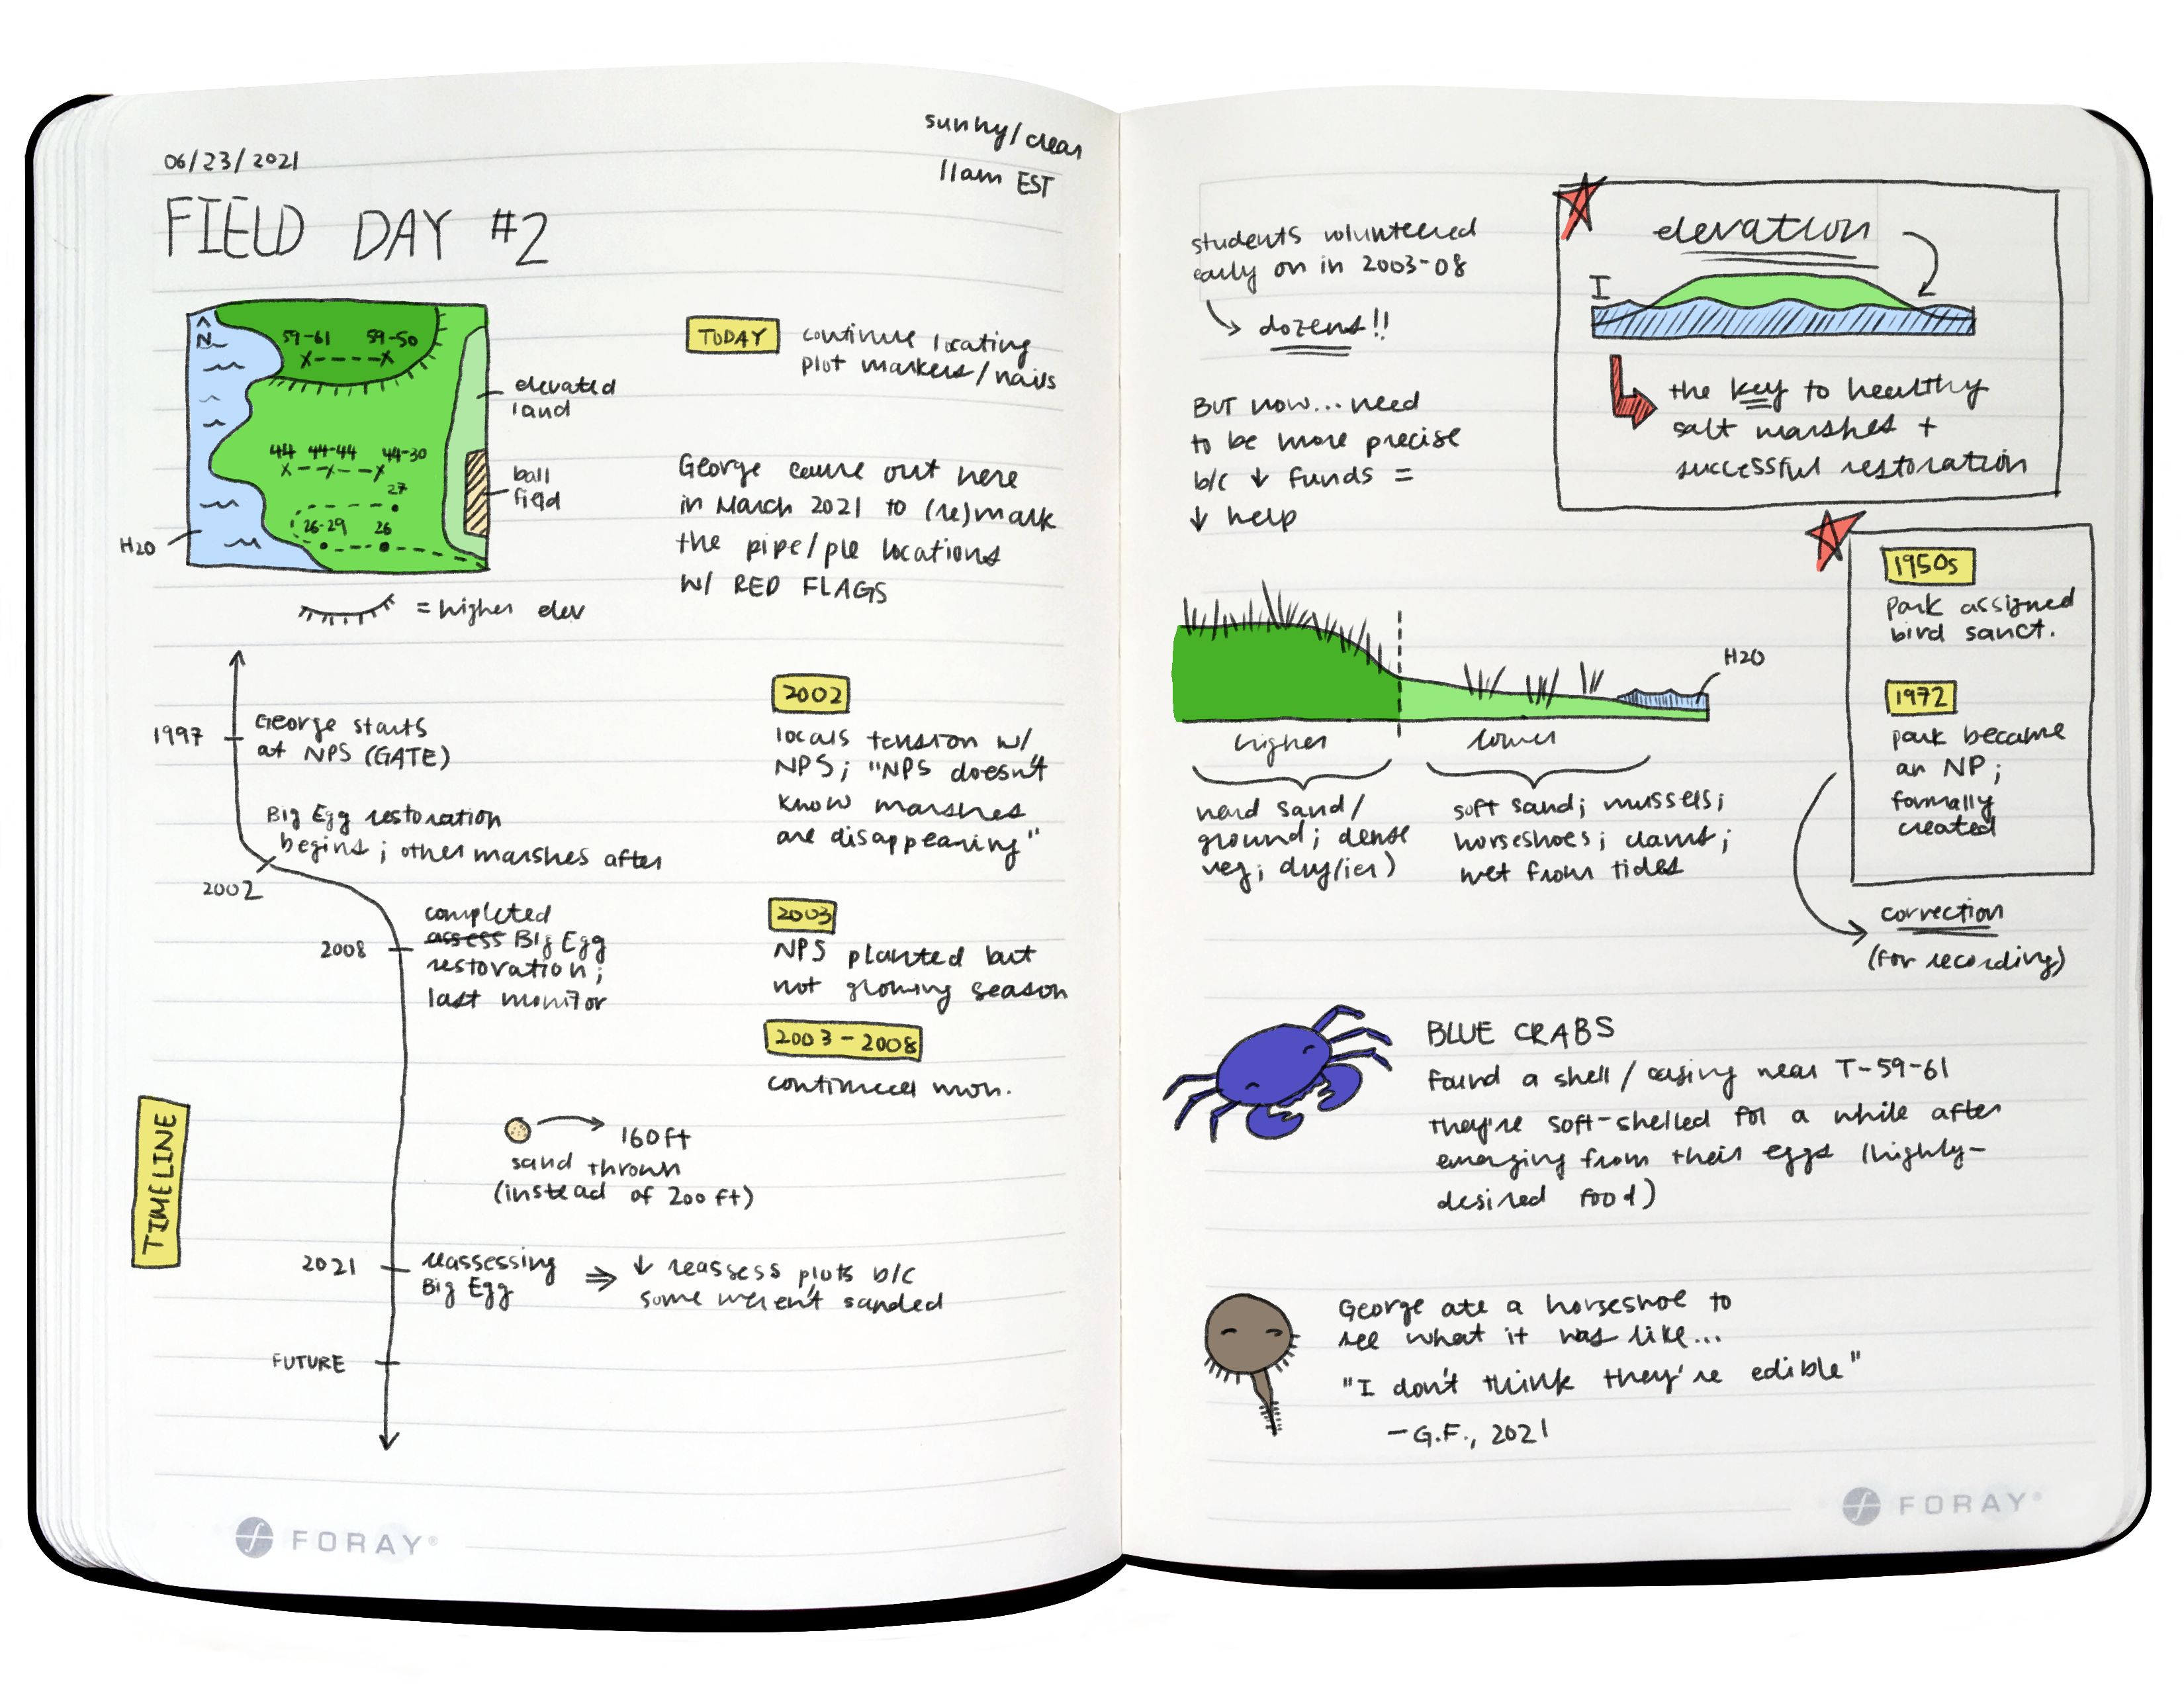 06/23/2021
sunny/clear
11am EST
FIELD DAY #2
N
59-61 59-50
44 44-44 44-30
27
26-29 26
H2O
elevated
land
ball
field
= higher elev
TODAY
continue locating
plot markers/nails
George came out here
in March 2021 to (re)mark
the pipe/ple locations
w/ RED FLAGS
TIMELINE
1997
George starts
at NPS (GATE)
Big Egg restoration
begins; other marshes after
2002
2008
completed
assess Big Egg
restoration;
last monitor
160ft
sand thrown
(instead of 200ft)
2021
reassessing
Big Egg
⇒ ↓ reassess plots b/c
some weren't sanded
FUTURE
2002
locals tension w/
NPS; "NPS doesn't
know marshes
are disappearing"
2003
NPS planted but
not growing season
2003-2008
continued mon.
FORAY®
students volunteered
early on in 2003-08
dozens!!
BUT now... need
to be more precise
b/c ↓ funds =
↓ help
elevation
I
the key to healthy
salt marshes +
successful restoration
1950s
park assigned
bird sanct.
1972
park became
an NP;
formally
created
correction
(for recording)
H2O
higher
lower
hard sand/
ground; dense
veg; dry(ier)
soft sand; mussels;
horseshoes; clams;
wet from tides
BLUE CRABS
found a shell/casing near T-59-61
they're soft-shelled for a while after
emerging from their eggs (highly-
desired food)
George ate a horseshoe to
see what it was like...
"I don't think they're edible"
-G.F., 2021
FORAY®